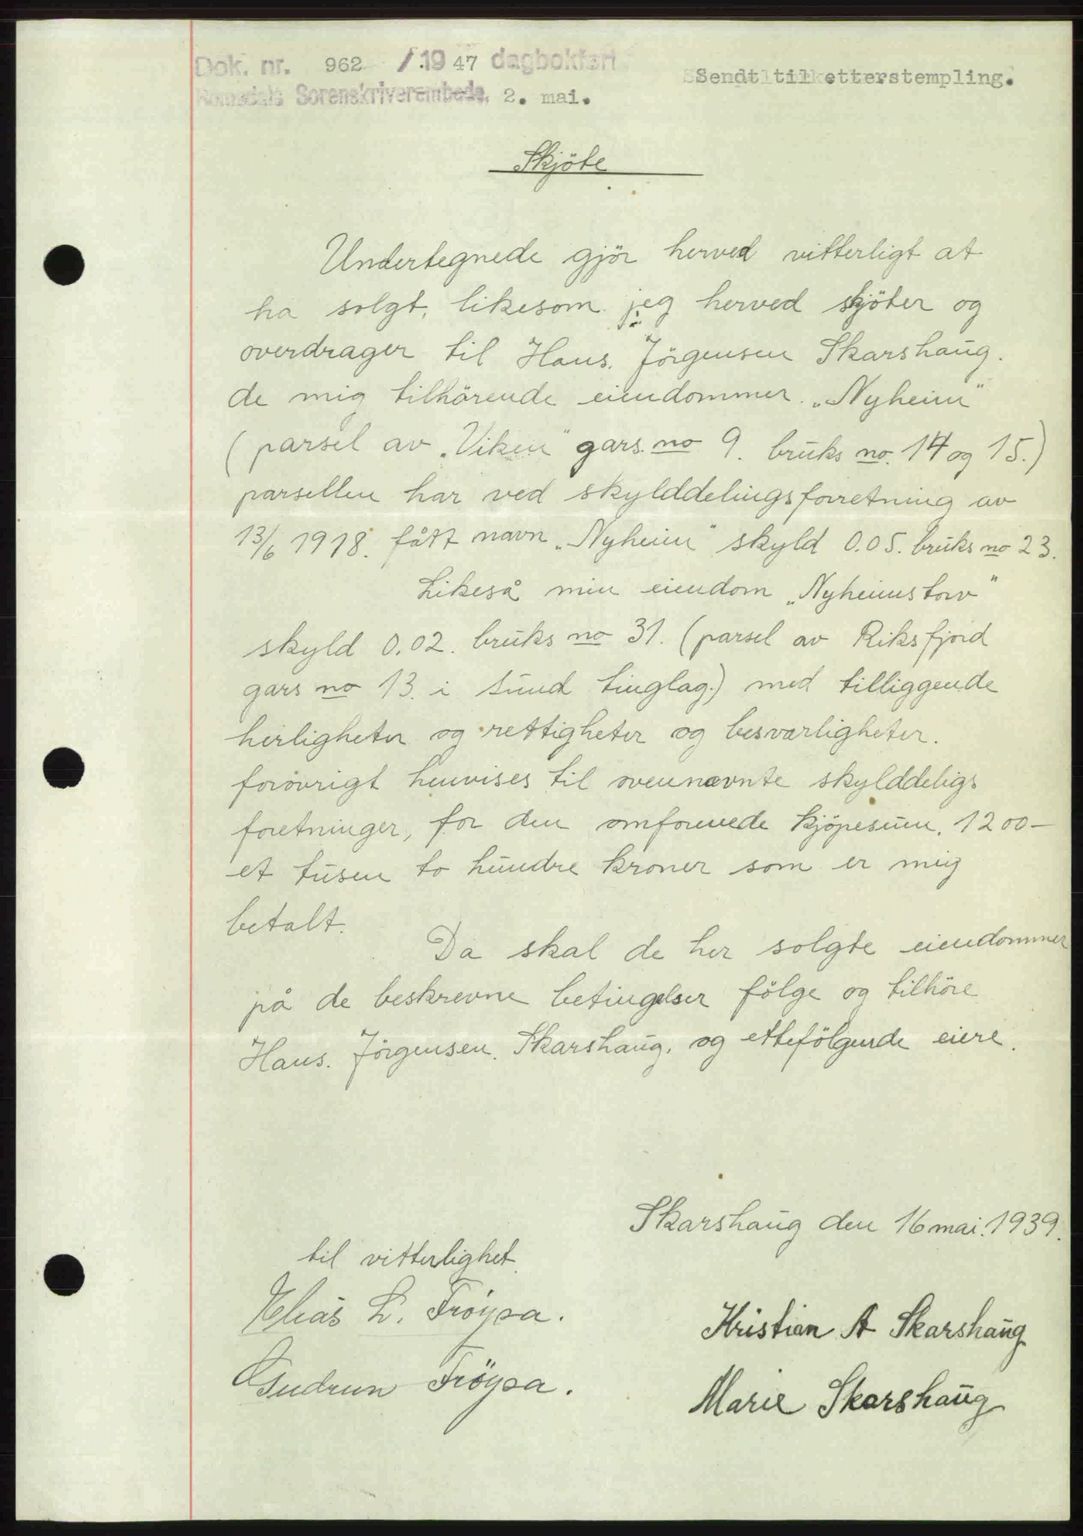 Dok. nr. 962 /19 47 dagbokført Sendt til etterstempling.
Romsdals Sorenskriverembede, 2. mai.
Skjöte
Undertegnede gjör herved vitterligt at
ha solgt, likesom jeg herved skjöter og
overdrager til Hans. Jörgensen Skarshaug.
de mig tilhörende eiendommer. „Nyheim"
(parsel av „Viken" gars. no 9. bruks no. 14 og 15.)
parsellen har ved skylddelingsforretning av
13/6 1918. fått navn „Nyheim" skyld 0.05. bruks no 23.
Likeså min eiendom „Nyheimstorv"
skyld 0.02. bruks no 31. (parsel av Riksfjord
gars no 13. i Sund tinglag.) med tilliggende
herligheter og rettigheter og besvarligheter.
forövrigt henvises til ovennævnte skylddeligs
foretninger, for den omforenede kjöpesum. 1200-
et tusen to hundre kroner som er mig
betalt.
Da skal de her solgte eiendommer
på de beskrevne betingelser fölge og tilhöre
Hans. Jörgensen. Skarshaug. og ettefölgende eiere.
Skarshaug den 16 mai. 1939.
til vitterlighet.
Elias L. Fröysa.
Kristian A Skarshaug
Gudrun Fröysa.
Marie Skarshaug